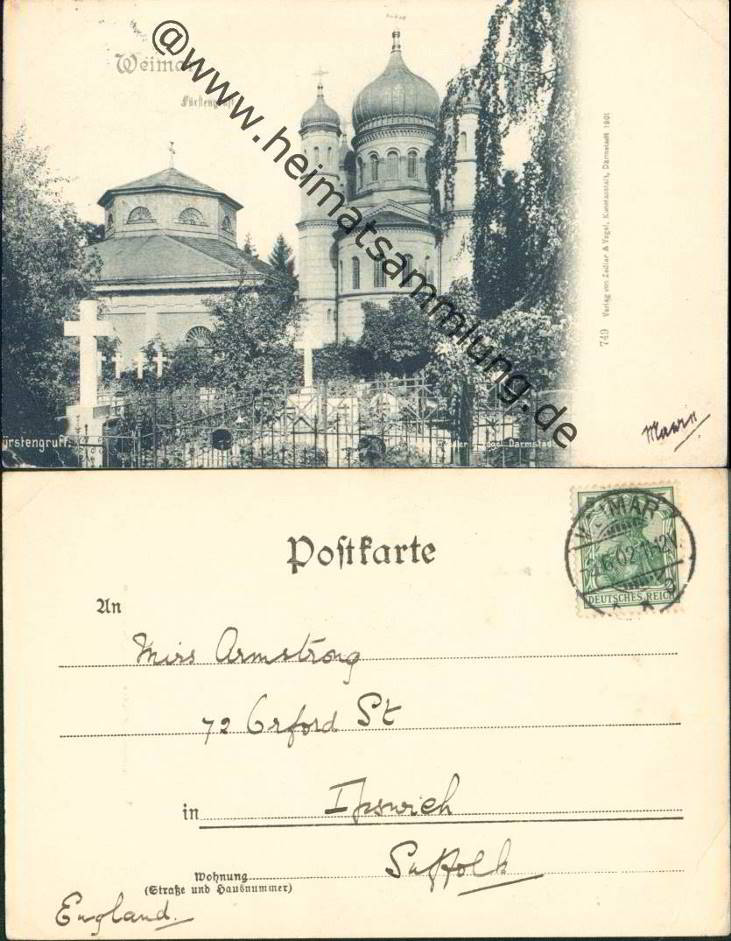 Weimar
Fürstengruft
@www.heimatsammlung.de
749 Verlag von Zedler & Vogel, Kunstanstalt, Darmstadt 1901
ürstengruft
Darmstadt
Postkarte
WEIMAR
DEUTSCHES REICH
An
Miss Armstrong
72 Orford St
in Ipswich
Suffolk
Wohnung
(Straße und Hausnummer)
England.